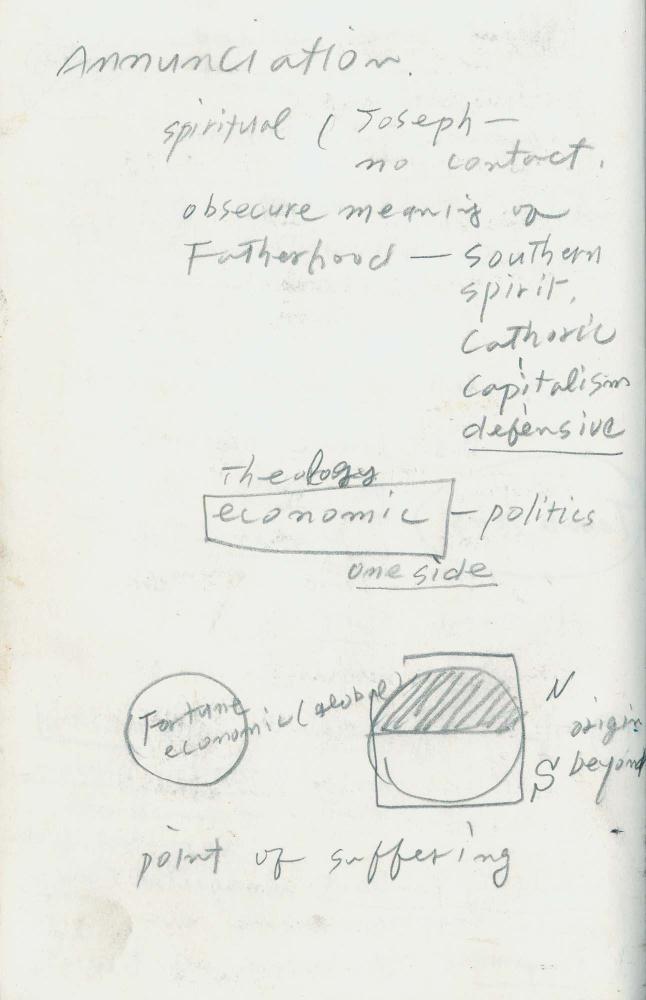 Annunciation.
spiritual ( Joseph —
no contact.
obsecure meaning of
Fatherhood — Southern
spirit,
Cathoric
Capitalism
defensive
Theology
economic — politics
one side
Fortune
economic (global)
N
origin
S beyond
point of suffering